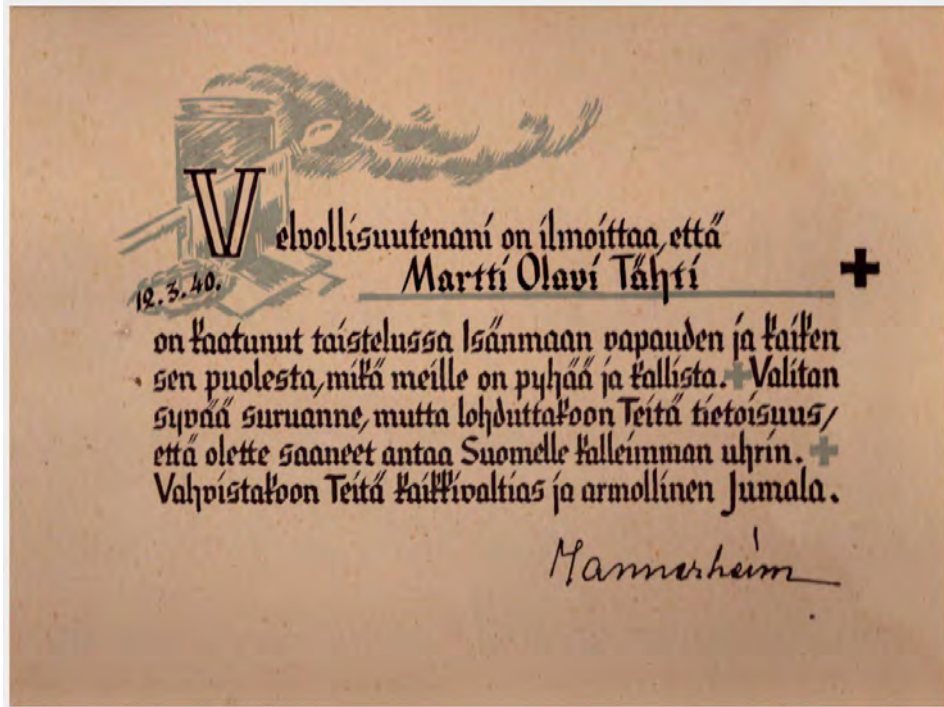 Velvollisuutenani on ilmoittaa, että
Martti Olavi Tähti
12.3.40.
on kaatunut taistelussa Isänmaan vapauden ja kaiken
sen puolesta, mikä meille on pyhää ja kallista. Valitan
syvää suruanne, mutta lohduttakoon Teitä tietoisuus,
että olette saaneet antaa Suomelle kalleimman uhrin.
Vahvistakoon Teitä kaikkivaltias ja armollinen Jumala.
Mannerheim